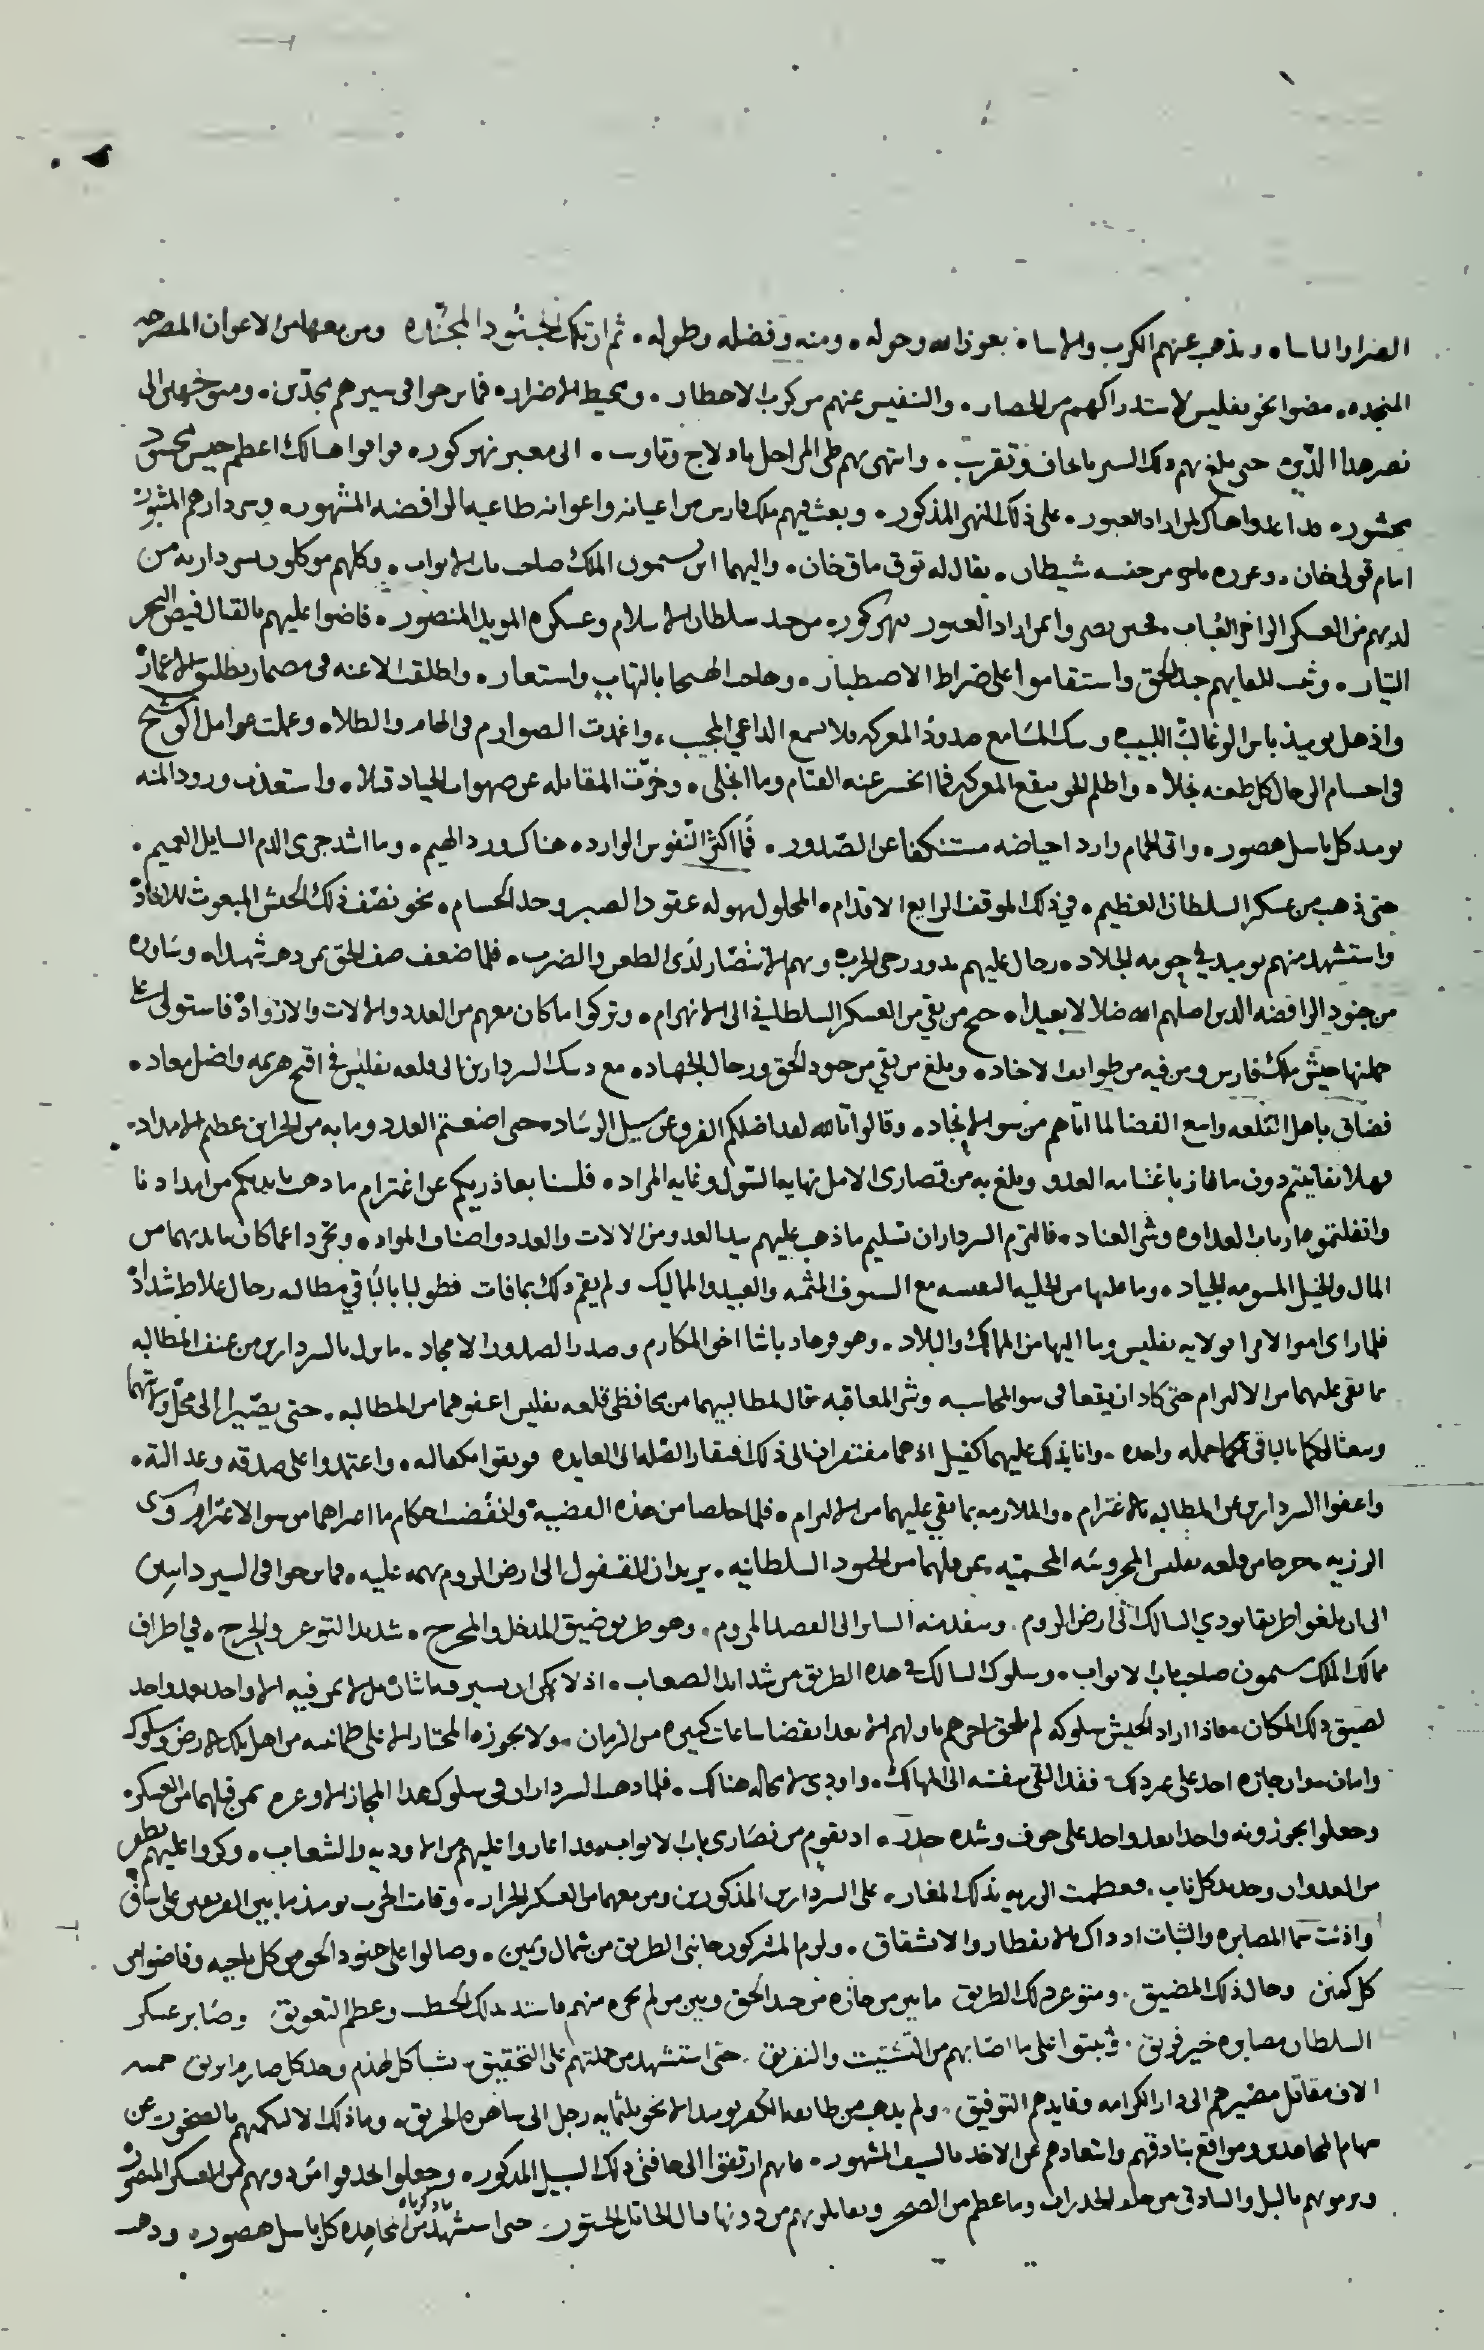 الضرا والباسا ه ويذهب عنهم الكرب والاسا ه بعون الله وحوله ه ومنه وفضله وطوله ه ثم ان تلك الجنود المختاره ومن معها من الاعوان المصرحه
المنجده ه مضوا نحو تفليس لاستدراكهم من الحصار ه والتنفيس عنهم من كرب الاخطار ه ومحيط الاضرار ه فما برحوا في سيرهم مجدين ه ومتوجهين الى
نصر هذا الدين ه حتى بلغ بهم ذلك السير وتقرب ه وانتهى بهم طي المراحل بادلاج وتاوب ه الى معبر نهر كور ه فوافوا هنالك اعظم جيش محشود
محشور ه على ذلك النهر المذكور ه وبعث فيهم ملك فارس من اعيانه واعوانه طاغيه الرافضه المشهور ه وسردارهم المثبور
امام قولي خان ه وعزره من جنسه شيطان ه يقال له توقماق خان ه واليهما ابن سيمون الملك صاحب باب الابواب ه وكلهم موكلون من
لديهم من العسكر ه نهر كور ه من جند سلطان الاسلام وعسكره المويد المنصور ه فاضوا عليهم بالقتال فيض البحر
التيار ه وثبت للقايهم جند الحق واستقاموا على صراط الاصطبار ه الهيجا بالتهاب واستعار ه واطلقت الاعنه في مضمار
واذهل يوميذ باس الوغا لب اللبيب ه المسامع المعركه فلا يسمع الداعي المجيب ه واغمدت الصوارم في الهام والطلا ه وعملت عوامل الوشيج
في اجسام الرجال كل طعنه نجلا ه واظلم الجو بنقع المعركه فما انحسر عنه القتام وما انجلى ه وخرت المقاتله عن صهوات الجياد قتلا ه واستعذب ورود المنيه
يوميذ كل باسل هصور ه واتى الحمام وارد احياضه مستنكفا عن الصدور ه فما اكثر النفوس الوارده هناك ورود الهيم ه وما اشد جرى الدم السايل العميم ه
حتى ذهب من عسكر السلطان العظيم ه في ذلك الموقف الاقدام ه المحلول بهوله عقود الصبر وحد الحسام ه نحو نصف ذلك الجيش المبعوث للانجاد
واستشهد منهم يوميذ في حومه الجلاد ه رجال عليهم تدور رحى الحرب ه وبهم الانتصار لدى الطعن والضرب ه فلما ضعف صف الحق بمن ذهب شهيدا ه وساوره
من جنود الرافضه الذين اضلهم الله ضلالا بعيدا ه جنح من بقي من العسكر السلطاني الى الانهزام ه وتركوا ما كان معهم من العدد والالات والازواد ه فاستولى على
جملتها جيش ملك فارس ومن فيه من طوايف الاخاد ه وبلغ من بقي من جنود الحق ورجال الجهاد ه مع ذينك السردارين الى قلعه تفليس في اقبح هزيمه واضل معاد ه
فضاق باهل القلعه واسع الفضا لما اتاهم من سو الانجاد ه وقالوا تالله لقد اضلكم الغرور عن سبيل الرشاد ه حتى اضعتم العدد وما به من الخزاين عظيم الامداد ه
فهلا تفانيتم دون ما فاز باغتنامه العدو وبلغ به من قصارى الامل نهايه السول وغايه المراد ه فلسنا بعاذريكم عن اغترام ما ذهب بايديكم من امدادنا
العداوه وشر العناد ه فالتزم السرداران تسليم ما ذهب عليهم بيد العدو من الالات والعدد واصناف المواد ه وتجردا عما كان بايديهما من
المال والخيل المسومه الجياد ه وما عليها من الحليه النفيسه مع السيوف المثمنه والعبيد والمماليك ولم يقم ذلك بما فات فطولبا بالباقي مطالبه رجال غلاظ شداد
فلما راى امير الامرا بولايه تفليس وما اليها من الممالك والبلاد ه وهو فرهاد باشا اخو المكارم وصدر الصدور الامجاد ه ما نزل بالسردارين من عنف المطالبه
بما بقي عليهما من الالتزام حتى كاد ان يقعا في سو المحاسبه وشر المعاقبه قال لمطالبيهما من محافظي قلعه تفليس اعفوهما من المطالبه ه حتى يصيرا الى محل ولايتهما
ويبعثا لكما بالباقي جمله واحده ه وانا بذلك عليهما كفيل اذ هما مفتقران الى ذلك افتقار الصله الى العايده فوثقوا بكفالته ه واعتمدوا على صدقه وعدالته ه
واعفوا السردارين عن المطالبه بالاغترام ه والملازمه بما بقي عليهما من الالتزام ه فلما خلصا من هذه القضيه ه وانقضت احكام ما اصراهما من سو الاغترام
الرزيه ه خرجا من قلعه تفليس المحروسه المحميه ه بمن قبلهما من الجنود السلطانيه ه يريدان القفول الى ارض الروم بهمه عليه ه فما برحوا في السير دايبين
الى ان بلغوا طريقا يودي السالك الى ارض الروم ه وينفذ منه الساير الى القصد المروم ه وهو طريق ضيق المدخل والمخرج ه شديد التوعر والحرج ه في اطراف
ممالك الملك سيمون صاحب باب الابواب ه وسلوك السالك في هذه الطريق من شدايد الصعاب ه اذ لا يمكن ان يسير فيها اثنان بل لا يمر فيه الا واحد بعد واحد
لضيق ذلك المكان ه فاذا اراد الجيش سلوكه لم يلحق اخرهم باولهم الا بعد انقضا ساعات كثيره من الزمان ه ولا يجوزه المختار الا على طمانينه من اهل تلك الارض وسلوك
وامان سوا ه جازه احد على غير ذلك فقد القى بنفسه الى المهالك ه واودى لا محاله هناك ه فلما ذهب السرداران في سلوك هذا المجاز الاوعر ه بمن قبلهما من العسكر ه
وجعلوا يجوزونه واحدا بعد واحد على خوف وشده حذر ه اذ بقوم من نصارى باب الابواب ه قد اغاروا عليهم من الاوديه والشعاب ه وكروا عليهم
من العدوان وحديد كل ناب ه فعظمت الرزيه بذلك المغار ه على السردارين المذكورين ومن معهما من العسكر الجرار ه وقامت الحرب يوميذ ما بين الفريقين على ساق
واذنت سما المصابره والثبات اذ ذاك بالانفطار والانشقاق ه ولزم المشركون جانبي الطريق من شمال ويمين ه وصالوا على جنود الحق من كل ناحيه وفاضوا من
كل كمين وحال ذلك المضيق ه ومتوعر ذلك الطريق ما بين من جازه من جند الحق وبين من لم يجزه منهم فاشتد بذلك الخطب وعظم التعويق ه وصابر عسكر
السلطان مصابره خير فريق ه وثبتوا على ما اصابهم من التشتيت والتفريق ه حتى استشهد من جملتهم على التحقيق ه بشبا كل لهذم وحد كل صارم ابريق خمسه
الاف مقاتل مصيرهم الى دار الكرامه وقايدهم التوفيق ه ولم يذهب من طايفه الكفر يوميذ الا نحو ثلثمايه رجل الى الحريق ه وما ذلك الا لتكمنهم بالصخور عن
سهام المجاهدين ومواقع بنادقهم وابتعادهم عن الاخذ بالسيف المشهور ه فانهم ارتفقوا الى حافتي ذلك السبيل المذكور ه وجعلوا من دونهم من العسكر المنصور
ويرمونهم بالنبل والبنادق من خلف الجدران وما عظم من الصخر ويقاتلونهم من دونها قتال الخاتل الختور ه حتى استشهد من المجاهده كل باسل هصور ه وذهب